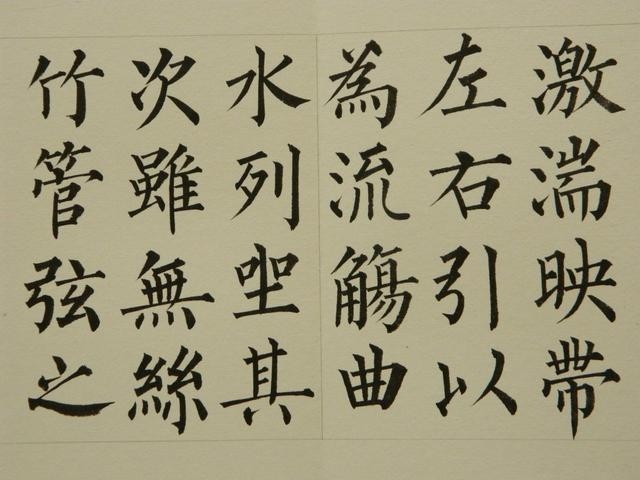 激湍映帶
左右引以
為流觴曲
水列坐其
次雖無絲
竹管弦之